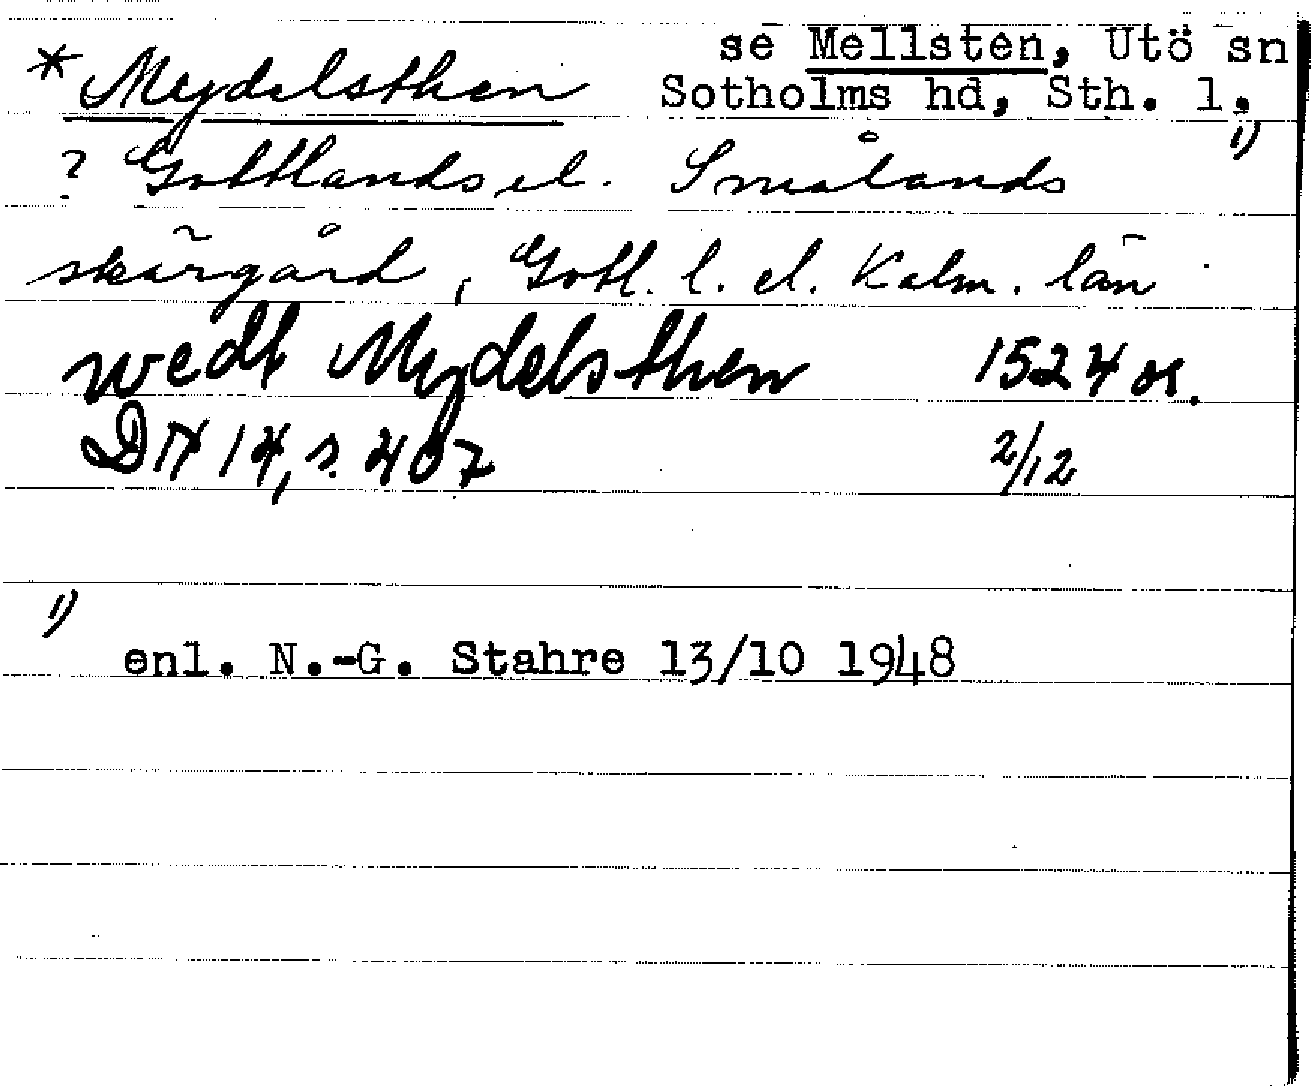 se Mellsten, Utö sn
* Mydelsthen Sotholms hd, Sth. l. 1)
? Gottlands el. Smålands
skärgård, Gotl. l. el. Kalm. län
wedt Mydelsthen 1524 or.
DN 14, s. 407 2/12
1)
enl. N.-G. Stahre 13/10 1948